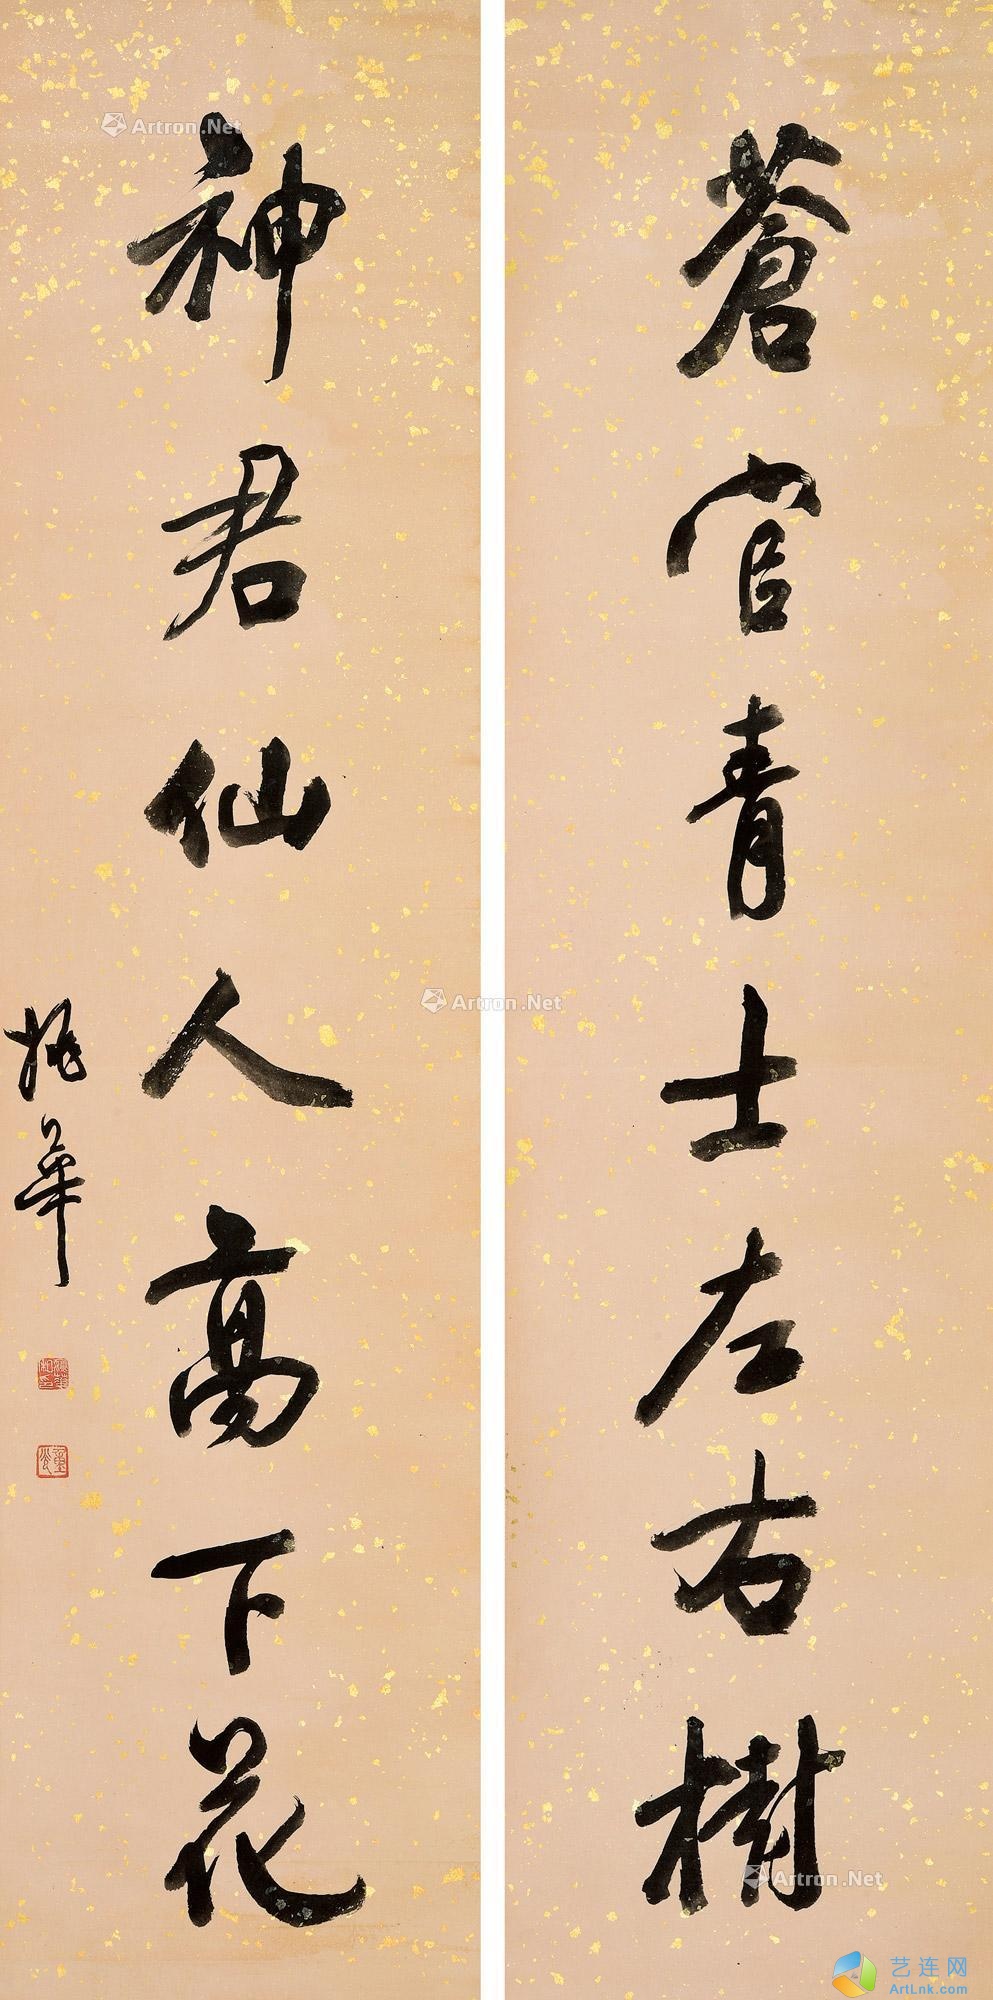 蒼官青士左右樹
神君仙人高下花
振華
Artron.Net
Artron.Net
Artron.Net
艺连网
ArtLnk.com